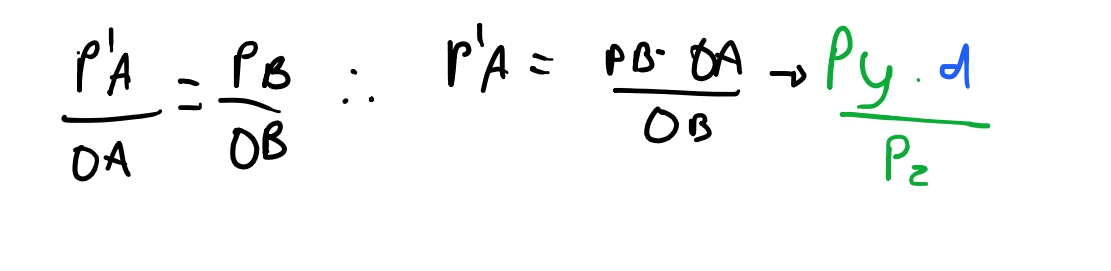 P'A/OA = PB/OB ∴ P'A = PB · OA/OB → Py · d/Pz